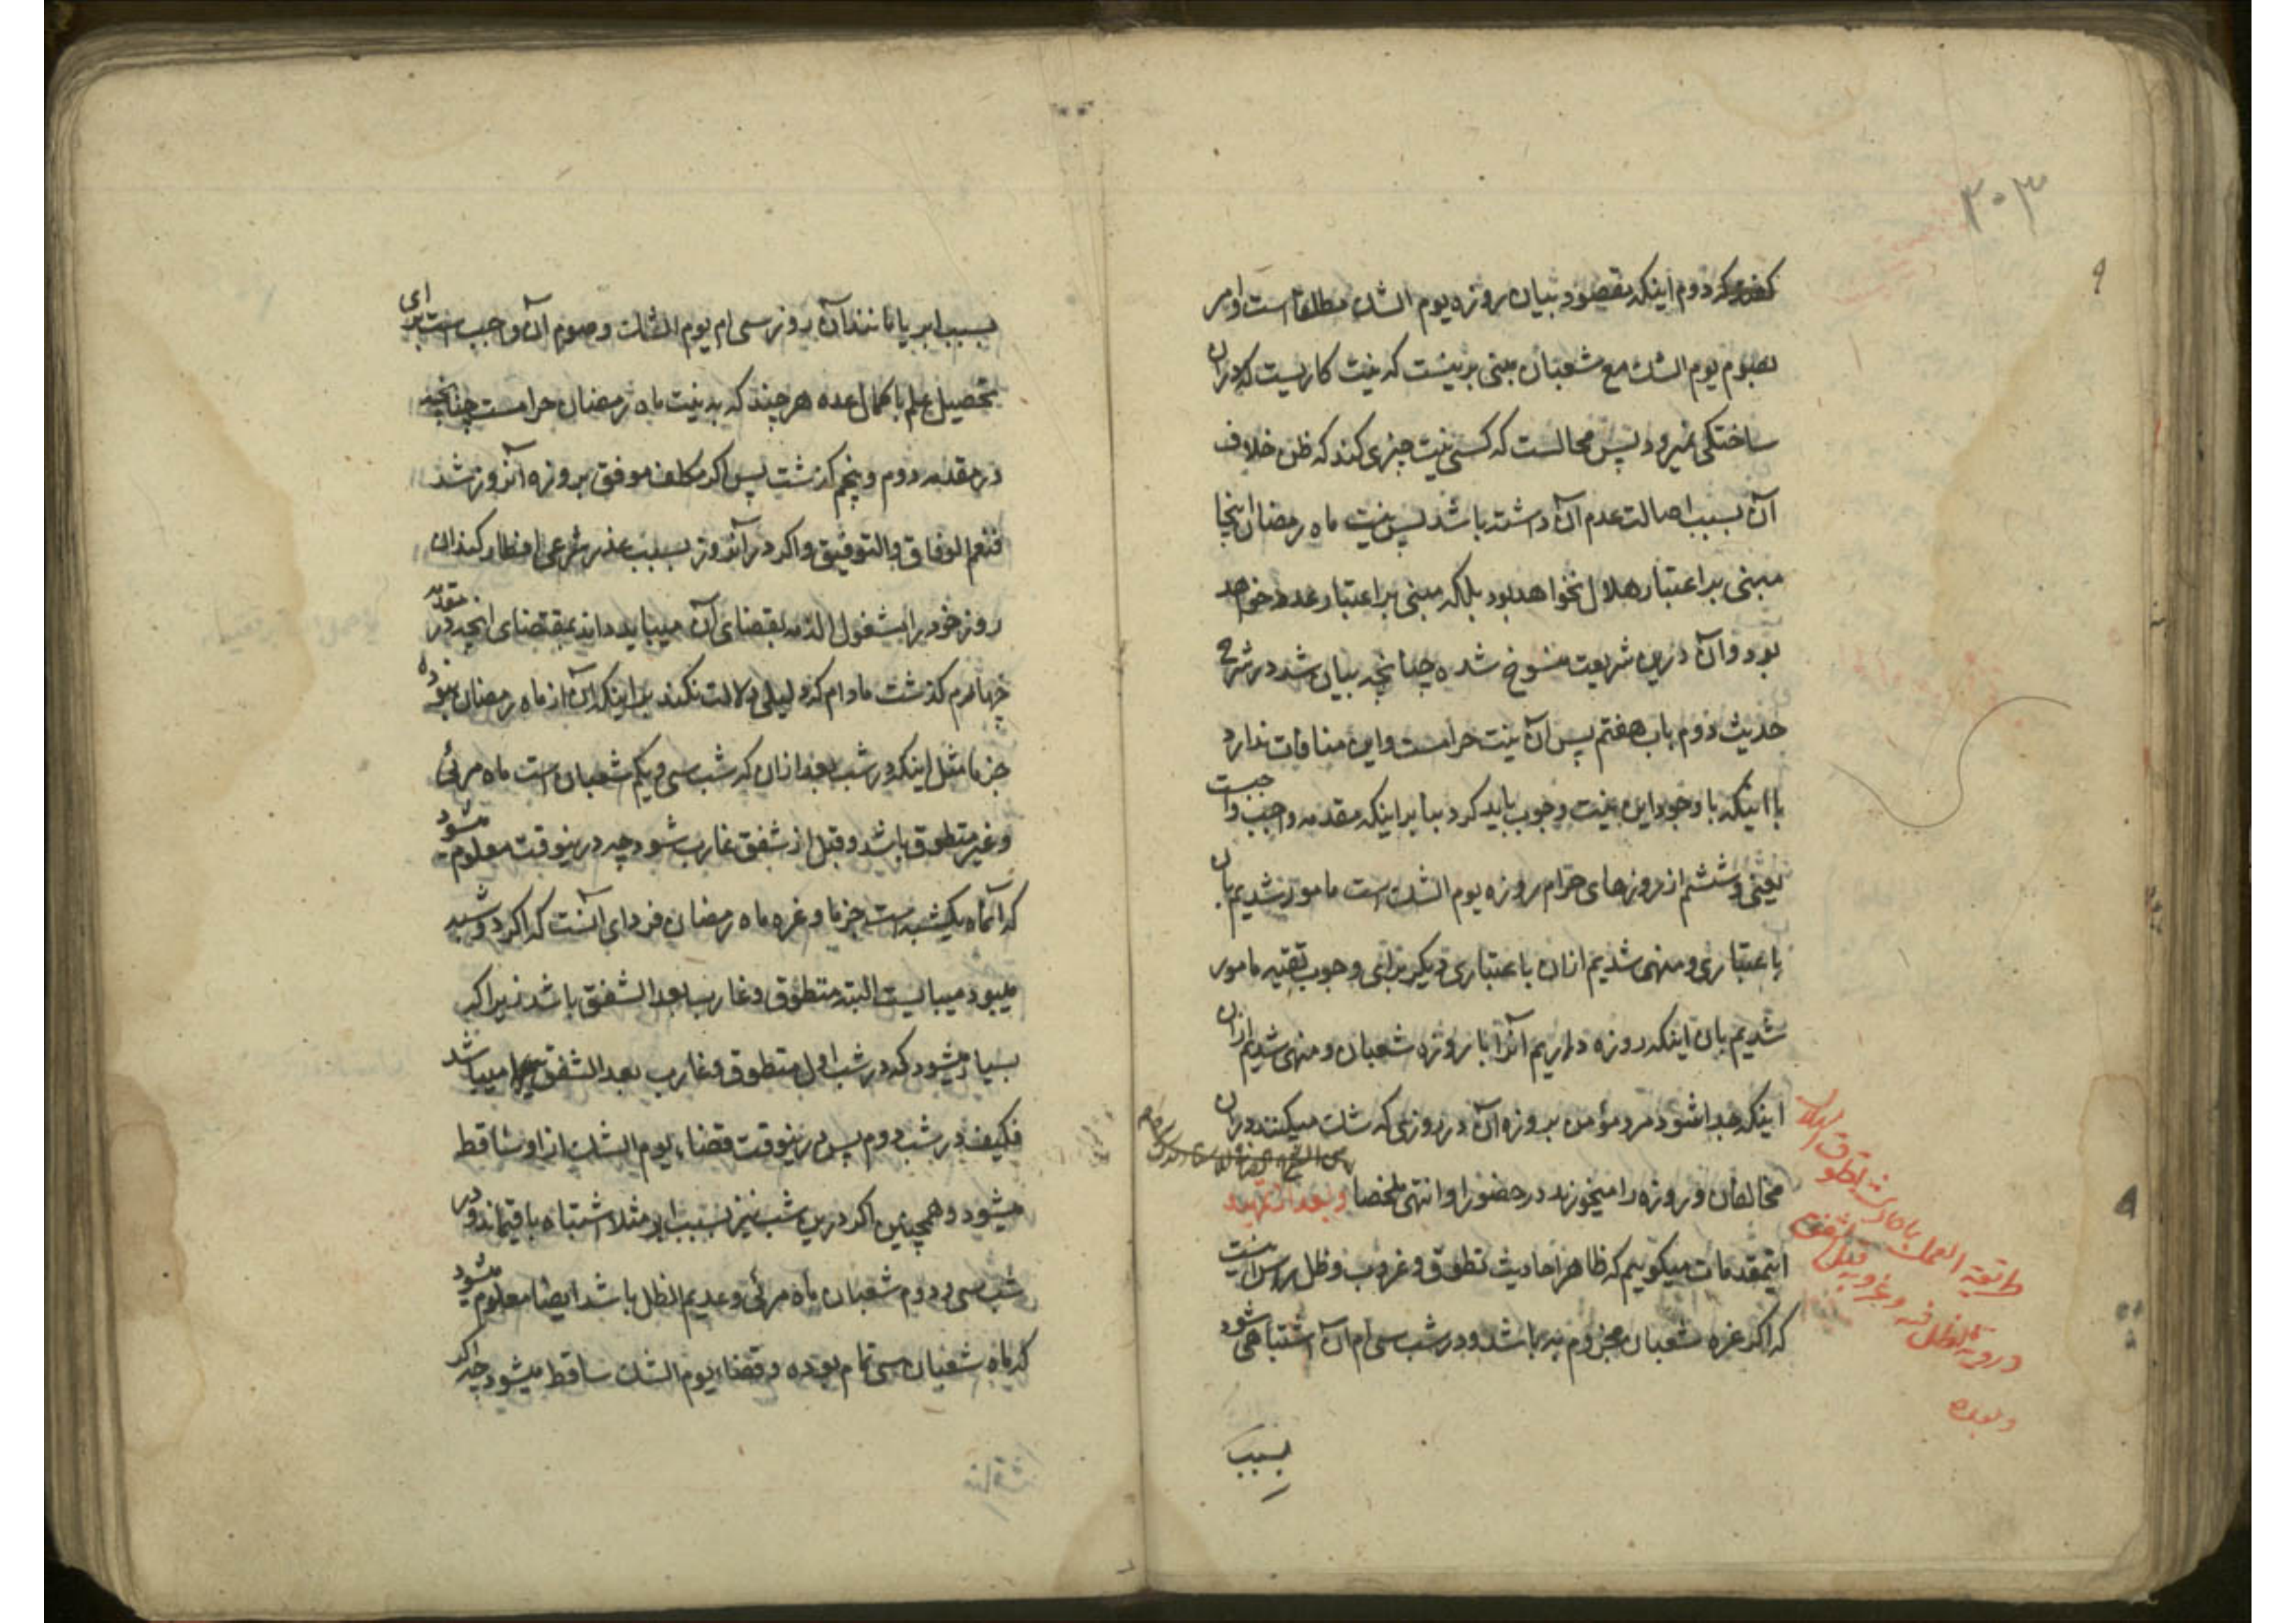 ۳۰۳
کرد دوم اینکه مقصود بیان روزه یوم الشک مطلقا است و امر
بصوم یوم الشک مع شعبان مبنی برینست که نیت کاریست که دران
ساختکی نمیرود پس محالست که کسی نیت چیزی کند که ظن خلاف
آن بسبب اصالت عدم آن داشته باشد پس نیت ماه رمضان اینجا
مبنی بر اعتبار هلال نخواهد بود بلکه مبنی بر اعتبار عدد خواهد
بود و آن درین شریعت منسوخ شده چنانچه بیان شد در شرح
حدیث دوم باب هفتم پس آن نیت حرامست و این منافات ندارد
با اینکه با وجود این نیت وجوب باید کرد بنا بر اینکه مقدمه واجب واجبست
یعنی و ششم از روزهای حرام روزه یوم الشک است مامور شدیم بان
باعتباری و منهی شدیم ازان باعتباری دیکر برای وجوب تقیه مامور
شدیم بان اینکه روزه داریم آنرا با روزه شعبان و منهی شدیم ازان
اینکه جدا شود مرد مؤمن بروزه آن در روزی که شک میکنند دران
مخالفان و روزه را میخورند در حضور او انتهی ملخصا و بعد از تمهید
اینمقدمات میکوییم که ظاهر احادیث تطوق و غروب و ظل راس اینست
که اکر غره شعبان مجزوم به باشد و در شب سی ام آن اشتباهی شود
بسبب
طریقة العمل باحادیث تطوق الهلال
و رویة الظل فیه و غروبه قبل الشفق
و بعده
بسبب ابر یا مانند آن روز سی ام یوم الشک و صوم آن واجب است برای
تحصیل علم باکمال عده هرچند که به نیت ماه رمضان حرامست چنانچه
در مقدمه دوم و پنجم کذشت پس اکر مکلف موفق بروزه آنروز شد
فنعم الوفاق والتوفیق و اکر در آنروز بسبب عذر شرعی افطار کند ان
روز خود را مشغول الذمه بقضای آن میباید داند بمقتضای آنچه در مقدمه
چهارم کذشت مادام که دلیلی دلالت نکند بر اینکه آن از ماه رمضان نبوده
جزما مثل اینکه در شب بعد ازان که شب سی و یکم شعبان است ماه مرئی
و غیر متطوق باشد و قبل از شفق غارب شود چه درینوقت معلوم میشود
که آنماه یکشبه است جزما و غره ماه رمضان فردای آنست که اکر دو شبه
میبود میبایست البته متطوق و غارب بعد الشفق باشد زیرا که
بسیار میشود که در شب اول متطوق و غارب بعد الشفق میباشد
فکیف در شب دوم پس درینوقت قضاء یوم الشک از او ساقط
میشود و همچنین اکر درین شب نیز بسبب ابر مثلا اشتباه باقیماند و در
شب سی و دوم شعبان ماه مرئی و عدیم الظل باشد ایضا معلوم میشود
که ماه شعبان سی تمام بوده و قضاء یوم الشک ساقط میشود چه اکر